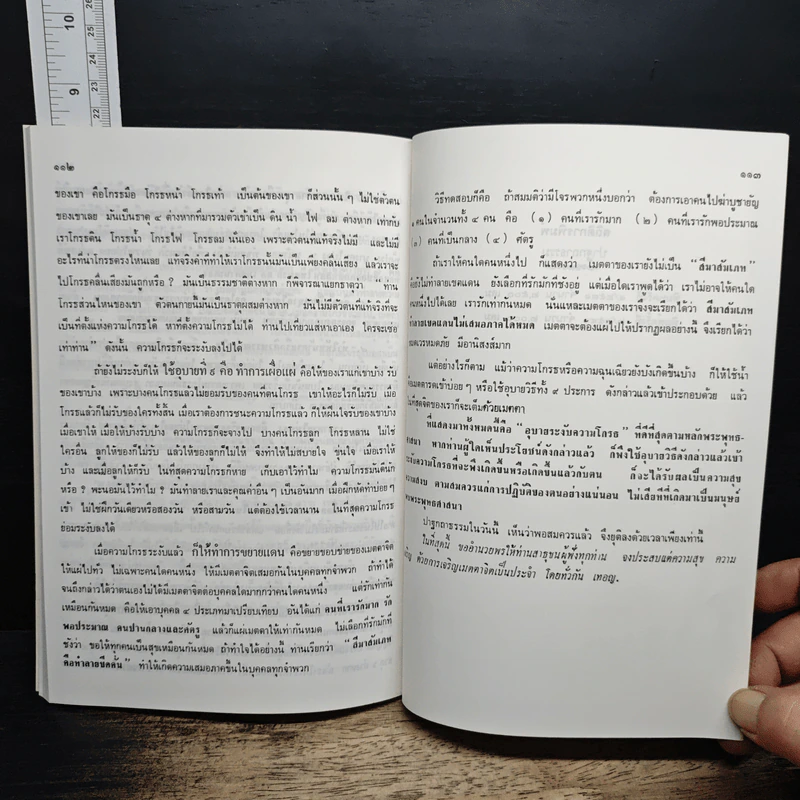 9
26
25
24
23
22
๑๑๒
ของเขา คือโกรธมือ โกรธหน้า โกรธเท้า เป็นต้นของเขา ก็ส่วนนั้น ๆ ไม่ใช่ตัวตน
ของเขาเลย มันเป็นธาตุ ๔ ต่างหากที่มารวมตัวเข้าเป็น ดิน น้ำ ไฟ ลม ต่างหาก เท่ากับ
เราโกรธดิน โกรธน้ำ โกรธไฟ โกรธลมนั่นเอง เพราะตัวตนที่แท้จริงไม่มี และไม่มี
อะไรที่น่าโกรธตรงไหนเลย แท้จริงคำที่ทำให้เราโกรธนั้นมันเป็นเพียงคลื่นเสียง แล้วเราจะ
ไปโกรธคลื่นเสียงมันถูกหรือ ? มันเป็นธรรมชาติต่างหาก ก็พิจารณาแยกธาตุว่า " ท่าน
โกรธส่วนไหนของเขา ตัวตนกายนี้มันเป็นธาตุผสมต่างหาก มันไม่มีตัวตนที่แท้จริงที่จะ
เป็นที่ตั้งแห่งความโกรธได้ หาที่ตั้งความโกรธไม่ได้ ท่านไปเที่ยวแส่หาเอาเอง ใครจะเซ่อ
เท่าท่าน " ดังนั้น ความโกรธก็จะระงับลงไปได้
ถ้ายังไม่ระงับก็ให้ ใช้อุบายที่ ๙ คือ ทำการเผื่อแผ่ คือให้ของเราแก่เขาบ้าง รับ
ของเขาบ้าง เพราะบางคนโกรธแล้วไม่ยอมรับของคนที่ตนโกรธ เขาให้อะไรก็ไม่รับ เมื่อ
โกรธแล้วก็ไม่รับของใครทั้งสิ้น เมื่อเราต้องการชนะความโกรธแล้ว ก็ให้ฝืนใจรับของเขาบ้าง
เมื่อเขาให้ เมื่อให้บ้างรับบ้าง ความโกรธก็จะจางไป บางคนโกรธลูก โกรธหลาน ไม่ใช่
ใครอื่น ลูกให้ของก็ไม่รับ แล้วให้ของลูกก็ไม่ให้ จึงทำให้ไม่สบายใจ ขุ่นใจ เมื่อเราให้
บ้าง และเมื่อลูกให้ก็รับ ในที่สุดความโกรธก็หาย เก็บเอาไว้ทำไม ความโกรธมันดีนัก
หรือ ? พะนอมันไว้ทำไม ? มันทำลายเราและคุณค่าอื่น ๆ เป็นอันมาก เมื่อฝึกหัดทำบ่อย ๆ
เข้า ไม่ใช่ฝึกวันเดียวหรือสองวัน หรือสามวัน แต่ต้องใช้เวลานาน ในที่สุดความโกรธ
ย่อมระงับลงได้
เมื่อความโกรธระงับแล้ว ก็ให้ทำการขยายแดน คือขยายขอบข่ายของเมตตาจิต
ให้แผ่ไปทั่ว ไม่เฉพาะคนใดคนหนึ่ง ให้มีเมตตาจิตเสมอกันในบุคคลทุกจำพวก ถ้าทำได้
จนถึงกล่าวได้ว่าตนเองไม่ได้มีเมตตาจิตต่อบุคคลใดมากกว่าคนใดคนหนึ่ง แต่รักเท่ากัน
เหมือนกันหมด คือให้เอาบุคคล ๔ ประเภทมาเปรียบเทียบ อันได้แก่ คนที่เรารักมาก รัก
พอประมาณ คนปานกลางและศัตรู แล้วก็แผ่เมตตาให้เท่ากันหมด ไม่เลือกที่รักมักที่
ชังว่า ขอให้ทุกคนเป็นสุขเหมือนกันหมด ถ้าทำใจได้อย่างนี้ ท่านเรียกว่า " สีมาสัมเภท
คือทำลายขีดคั่น " ทำให้เกิดความเสมอภาคขึ้นในบุคคลทุกจำพวก
๑๑๓
วิธีทดสอบก็คือ ถ้าสมมติว่ามีโจรพวกหนึ่งบอกว่า ต้องการเอาคนไปฆ่าบูชายัญ
๑ คนในจำนวนทั้ง ๔ คน คือ (๑) คนที่เรารักมาก (๒) คนที่เรารักพอประมาณ
(๓) คนที่เป็นกลาง (๔) ศัตรู
ถ้าเราให้คนใดคนหนึ่งไป ก็แสดงว่า เมตตาของเรายังไม่เป็น " สีมาสัมเภท "
ยังไม่ทำลายเขตแดน ยังเลือกที่รักมักที่ชังอยู่ แต่เมื่อใดเราพูดได้ว่า เราไม่อาจให้คนใด
คนหนึ่งไปได้เลย เรารักเท่ากันหมด นั่นแหละเมตตาของเราจึงจะเรียกได้ว่า สีมาสัมเภท
ทำลายเขตแดนไม่เสมอภาคได้หมด เมตตาจะต้องแผ่ไปให้ปรากฏผลอย่างนี้ จึงเรียกได้ว่า
หมดเวรหมดภัย มีอานิสงส์มาก
แต่อย่างไรก็ตาม แม้ว่าความโกรธหรือความฉุนเฉียวยังบังเกิดขึ้นบ้าง ก็ให้ใช้น้ำ
เมตตารดเข้าบ่อย ๆ หรือใช้อุบายวิธีทั้ง ๙ ประการ ดังกล่าวแล้วเข้าประกอบด้วย แล้ว
ในที่สุดจิตของเราก็จะเต็มด้วยเมตตา
ที่แสดงมาทั้งหมดนี้คือ " อุบายระงับความโกรธ " ที่ดีที่สุดตามหลักพระพุทธ-
ศาสนา หากท่านผู้ใดเห็นประโยชน์ดังกล่าวแล้ว ก็พึงใช้อุบายวิธีดังกล่าวแล้วเข้า
ระงับความโกรธที่จะพึงเกิดขึ้นหรือเกิดขึ้นแล้วกับตน ก็จะได้รับผลเป็นความสุข
ความสงบ ตามสมควรแก่การปฏิบัติของตนอย่างแน่นอน ไม่เสียทีที่เกิดมาเป็นมนุษย์
พบพระพุทธศาสนา
ปาฐกถาธรรมในวันนี้ เห็นว่าพอสมควรแล้ว จึงยุติลงด้วยเวลาเพียงเท่านี้
ในที่สุดนี้ ขออำนวยพรให้ท่านสาธุชนผู้ฟังทุกท่าน จงประสบแต่ความสุข ความ
เจริญ ด้วยการเจริญเมตตาจิตเป็นประจำ โดยทั่วกัน เทอญ.